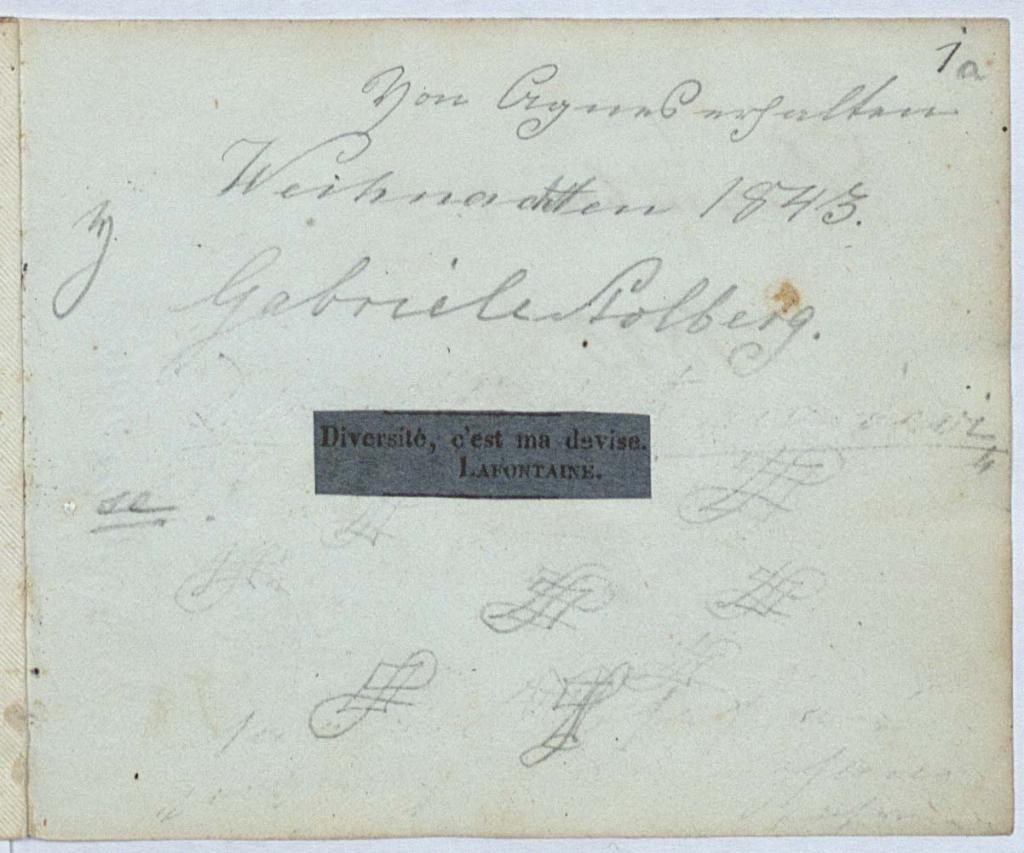 1a
Von Agnes erhalten
Weihnachten 1843.
Gabriele Stolberg.
Diversité, c'est ma devise.
LAFONTAINE.